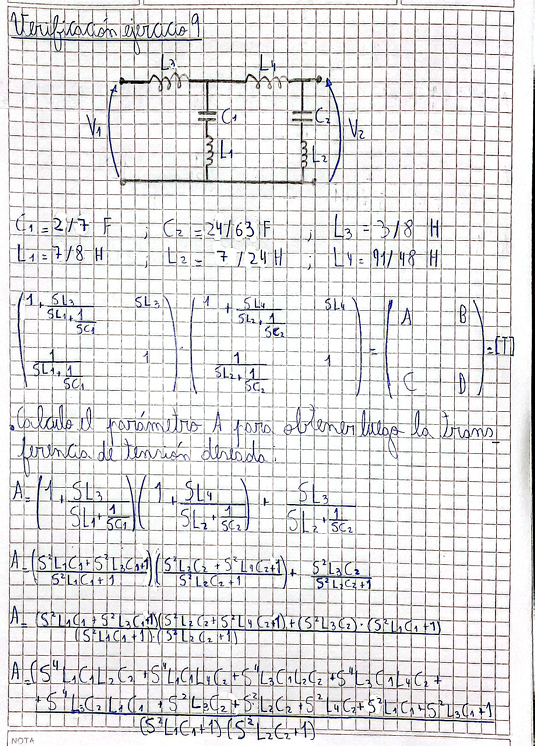 Verificación ejercicio 9
L3 L4
V1 C1 C2 V2
L1 L2
C1 = 2/7 F ; C2 = 24/63 F ; L3 = 3/8 H
L1 = 7/8 H ; L2 = 7/24 H ; L4 = 91/48 H
(1 + SL3/(SL1 + 1/SC1) SL3) . (1 + SL4/(SL2 + 1/SC2) SL4) = (A B) = [T]
(1/(SL1 + 1/SC1) 1) (1/(SL2 + 1/SC2) 1) (C D)
. Calculo el parámetro A para obtener luego la trans-
ferencia de tensión deseada.
A = (1 + SL3/(SL1 + 1/SC1)) (1 + SL4/(SL2 + 1/SC2)) + SL3/(SL2 + 1/SC2)
A = ((S²L1C1 + S²L3C1+1)/(S²L1C1 + 1)) ((S²L2C2 + S²L4C2+1)/(S²L2C2 + 1)) + S²L3C2/(S²L2C2+1)
A = ((S²L1C1 + S²L3C1+1)(S²L2C2 + S²L4C2+1) + (S²L3C2) . (S²L1C1+1))/((S²L1C1+1).(S²L2C2+1)
A = (S⁴L1C1L2C2 + S⁴L1C1L4C2 + S⁴L3C1L2C2 + S⁴L3C1L4C2 +
+ S⁴L3C2L1C1 + S²L3C2 + S²L2C2 + S²L4C2 + S²L1C1 + S²L3C1 + 1
(S²L1C1+1) (S²L2C2+1)
NOTA